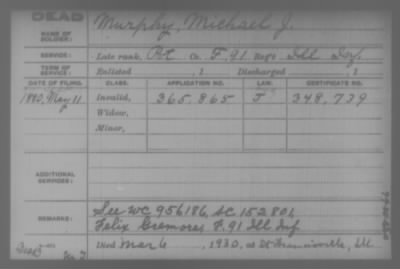 DEAD
NAME OF SOLDIER: Murphy, Michael J.
SERVICE: Late rank, Pvt Co. F, 91 Reg't Ill Inf.
TERM OF SERVICE: Enlisted , 1 Discharged , 1
DATE OF FILING. CLASS. APPLICATION NO. LAW. CERTIFICATE NO.
1880, May 11 Invalid, 365,865 348,739
Widow,
Minor,
ADDITIONAL SERVICES:
REMARKS: See WC 956186, SC 152801
Felix F. 91 Ill Inf
Died Mar 6, 1930, at Ill